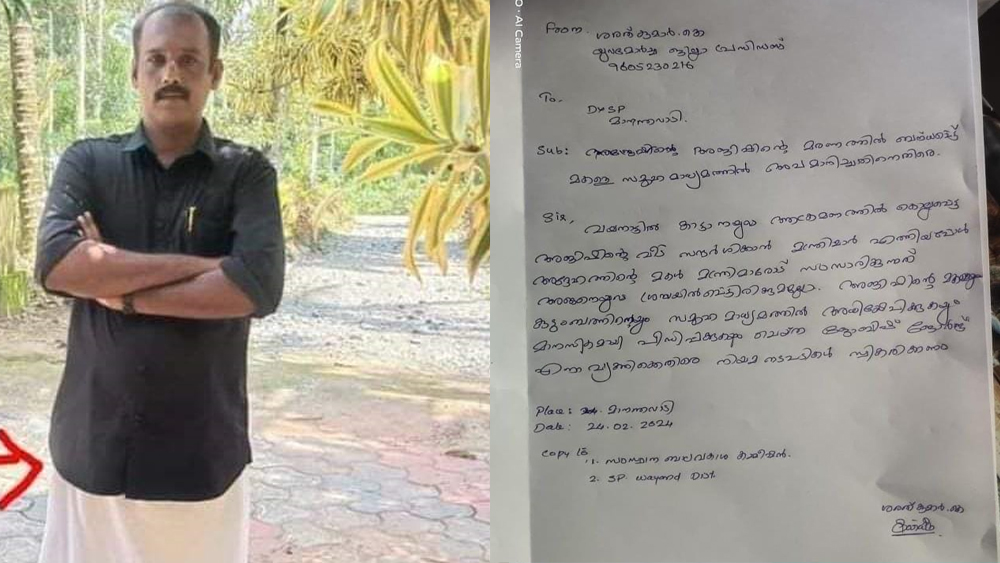 O · AI Camera
From
ശരത്കുമാർ.കെ
യുവമോർച്ച ജില്ലാ പ്രസിഡന്റ്
9605230216
To,
DYSP
മാനന്തവാടി.
Sub: അജീഷിന്റെ മരണത്തിൽ ബന്ധപ്പെട്ട്
മകളെ സമൂഹമാധ്യമത്തിൽ അപമാനിച്ചതിനെതിരെ.
Sir,
വയനാട്ടിൽ കാട്ടാനയുടെ ആക്രമണത്തിൽ കൊല്ലപ്പെട്ട
അജീഷിന്റെ വീട് സന്ദർശിക്കാൻ മന്ത്രിമാർ എത്തിയപ്പോൾ
അദ്ദേഹത്തിന്റെ മകൾ മന്ത്രിമാരോട് സംസാരിക്കുന്നത്
ശ്രദ്ധയിൽപെട്ടിരിക്കുമല്ലോ. അജീഷിന്റെ
കുടുംബത്തിനെയും സമൂഹ മാധ്യമത്തിൽ അധിക്ഷേപിക്കുകയും
മാനസികമായി പീഡിപ്പിക്കുകയും ചെയ്ത ജോബിഷ് ജോർജ്
എന്ന വ്യക്തിക്കെതിരെ നിയമ നടപടികൾ സ്വീകരിക്കണം
Place: മാനന്തവാടി
Date: 24.02.2024
Copy to
1. സംസ്ഥാന ബാലവകാശ കമ്മീഷൻ.
2. SP Wayanad Dist.
ശരത്കുമാർ.കെ